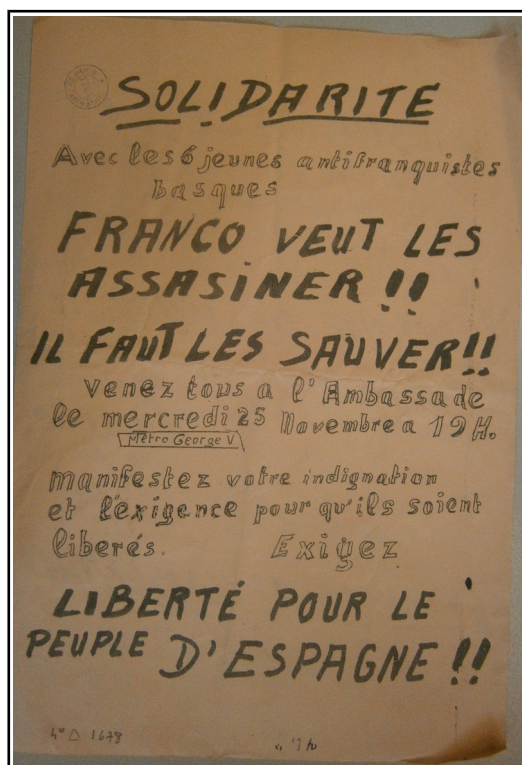 SOLIDARITE
Avec les 6 jeunes antifranquistes
basques
FRANCO VEUT LES
ASSASINER !!
IL FAUT LES SAUVER!!
Venez tous a l'Ambassade
le mercredi 25 Novembre a 19H.
Métro George V
manifestez votre indignation
et l'exigence pour qu'ils soient
liberés. Exigez
LIBERTÉ POUR LE
PEUPLE D'ESPAGNE !!
4° Δ 1678